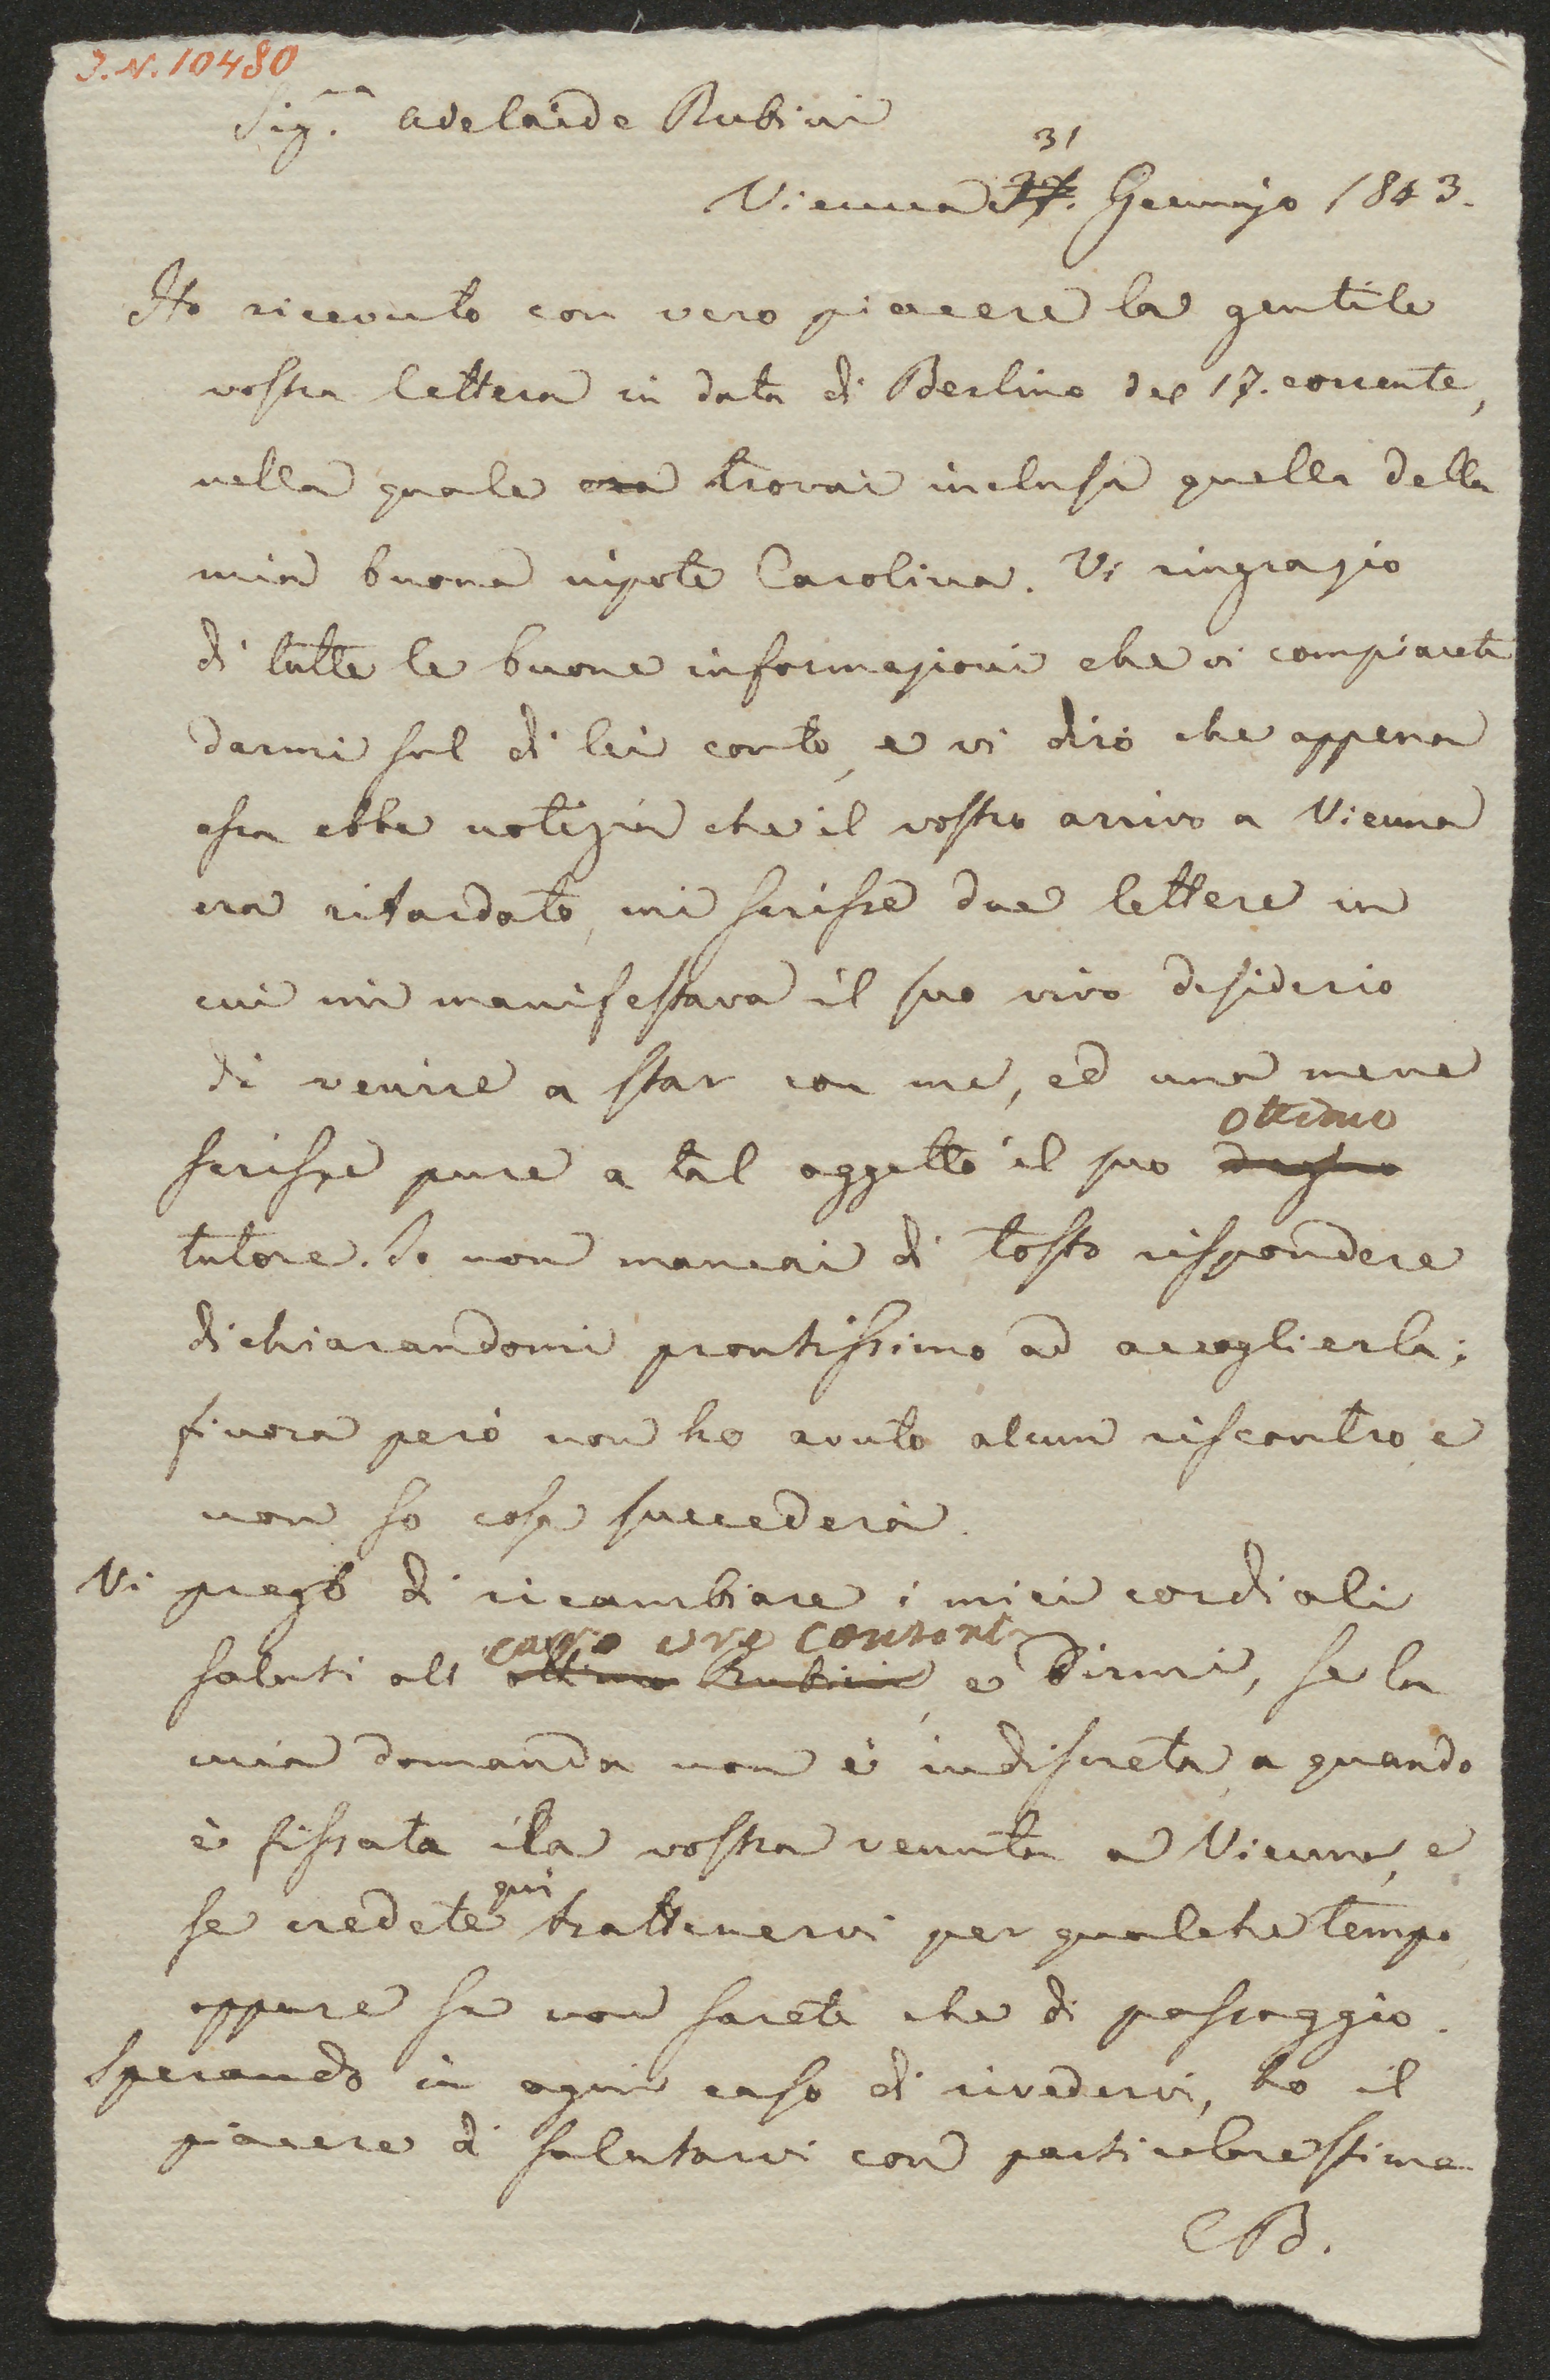 I.N. 10480
Sig.ra Adelaide Rubini
31
Vienna 27. Gennajo 1843.
Ho ricevuto con vero piacere la gentile
vostra lettera in data di Berlino del 17. corrente,
nella quale era trovai inclusa quella della
mia buona nipote Carolina. Vi ringrazio
di tutte le buone informazioni che vi compiacete
darmi sul di lei conto, e vi dirò che appena
essa ebbe notizia che il vostro arrivo a Vienna
era ritardato, mi scrisse due lettere in
cui mi manifestava il suo vivo desiderio
di venire a star con me, ed una mene
ottimo
scrisse pure a tal oggetto il suo degno
tutore. Io non mancai di tosto rispondere
dichiarandomi prontissimo ad accoglierla;
finora però non ho avuto alcun riscontro e
non so cosa succederà.
Vi prego di ricambiare i miei cordiali
caro vro consorte
saluti all ottimo Rubini, e dirmi, se la
mia domanda non è indiscreta, a quando
è fissata la vostra venuta a Vienna, e
qui
se credete trattenervi per qualche tempo,
oppure se non sarete che di passaggio.
Sperando in ogni caso di rivedervi, ho il
piacere di salutarvi con particolare stima
CB.